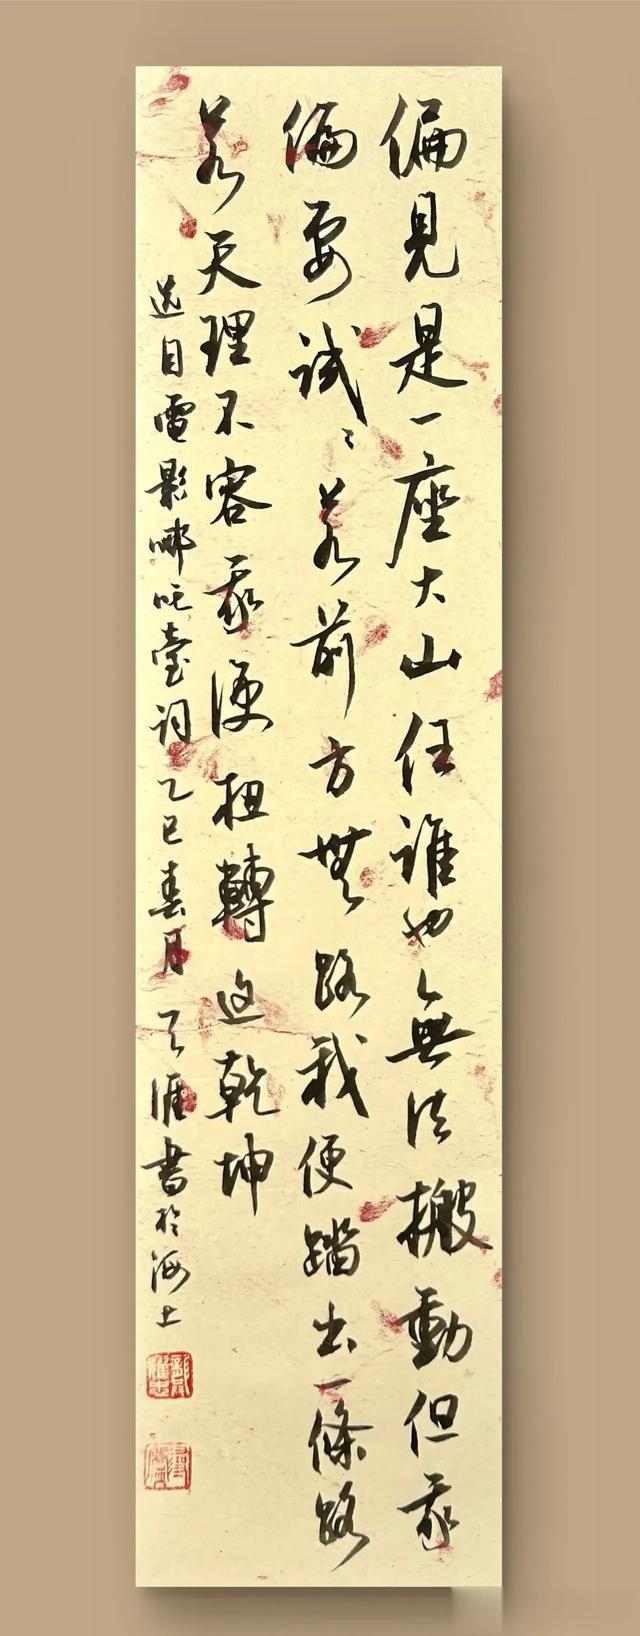 偏見是一座大山任誰也無法搬動但我
偏要試試若前方無路我便踏出一條路
若天理不容我便扭轉这乾坤
选自電影哪吒臺词乙巳春月天涯書於海上